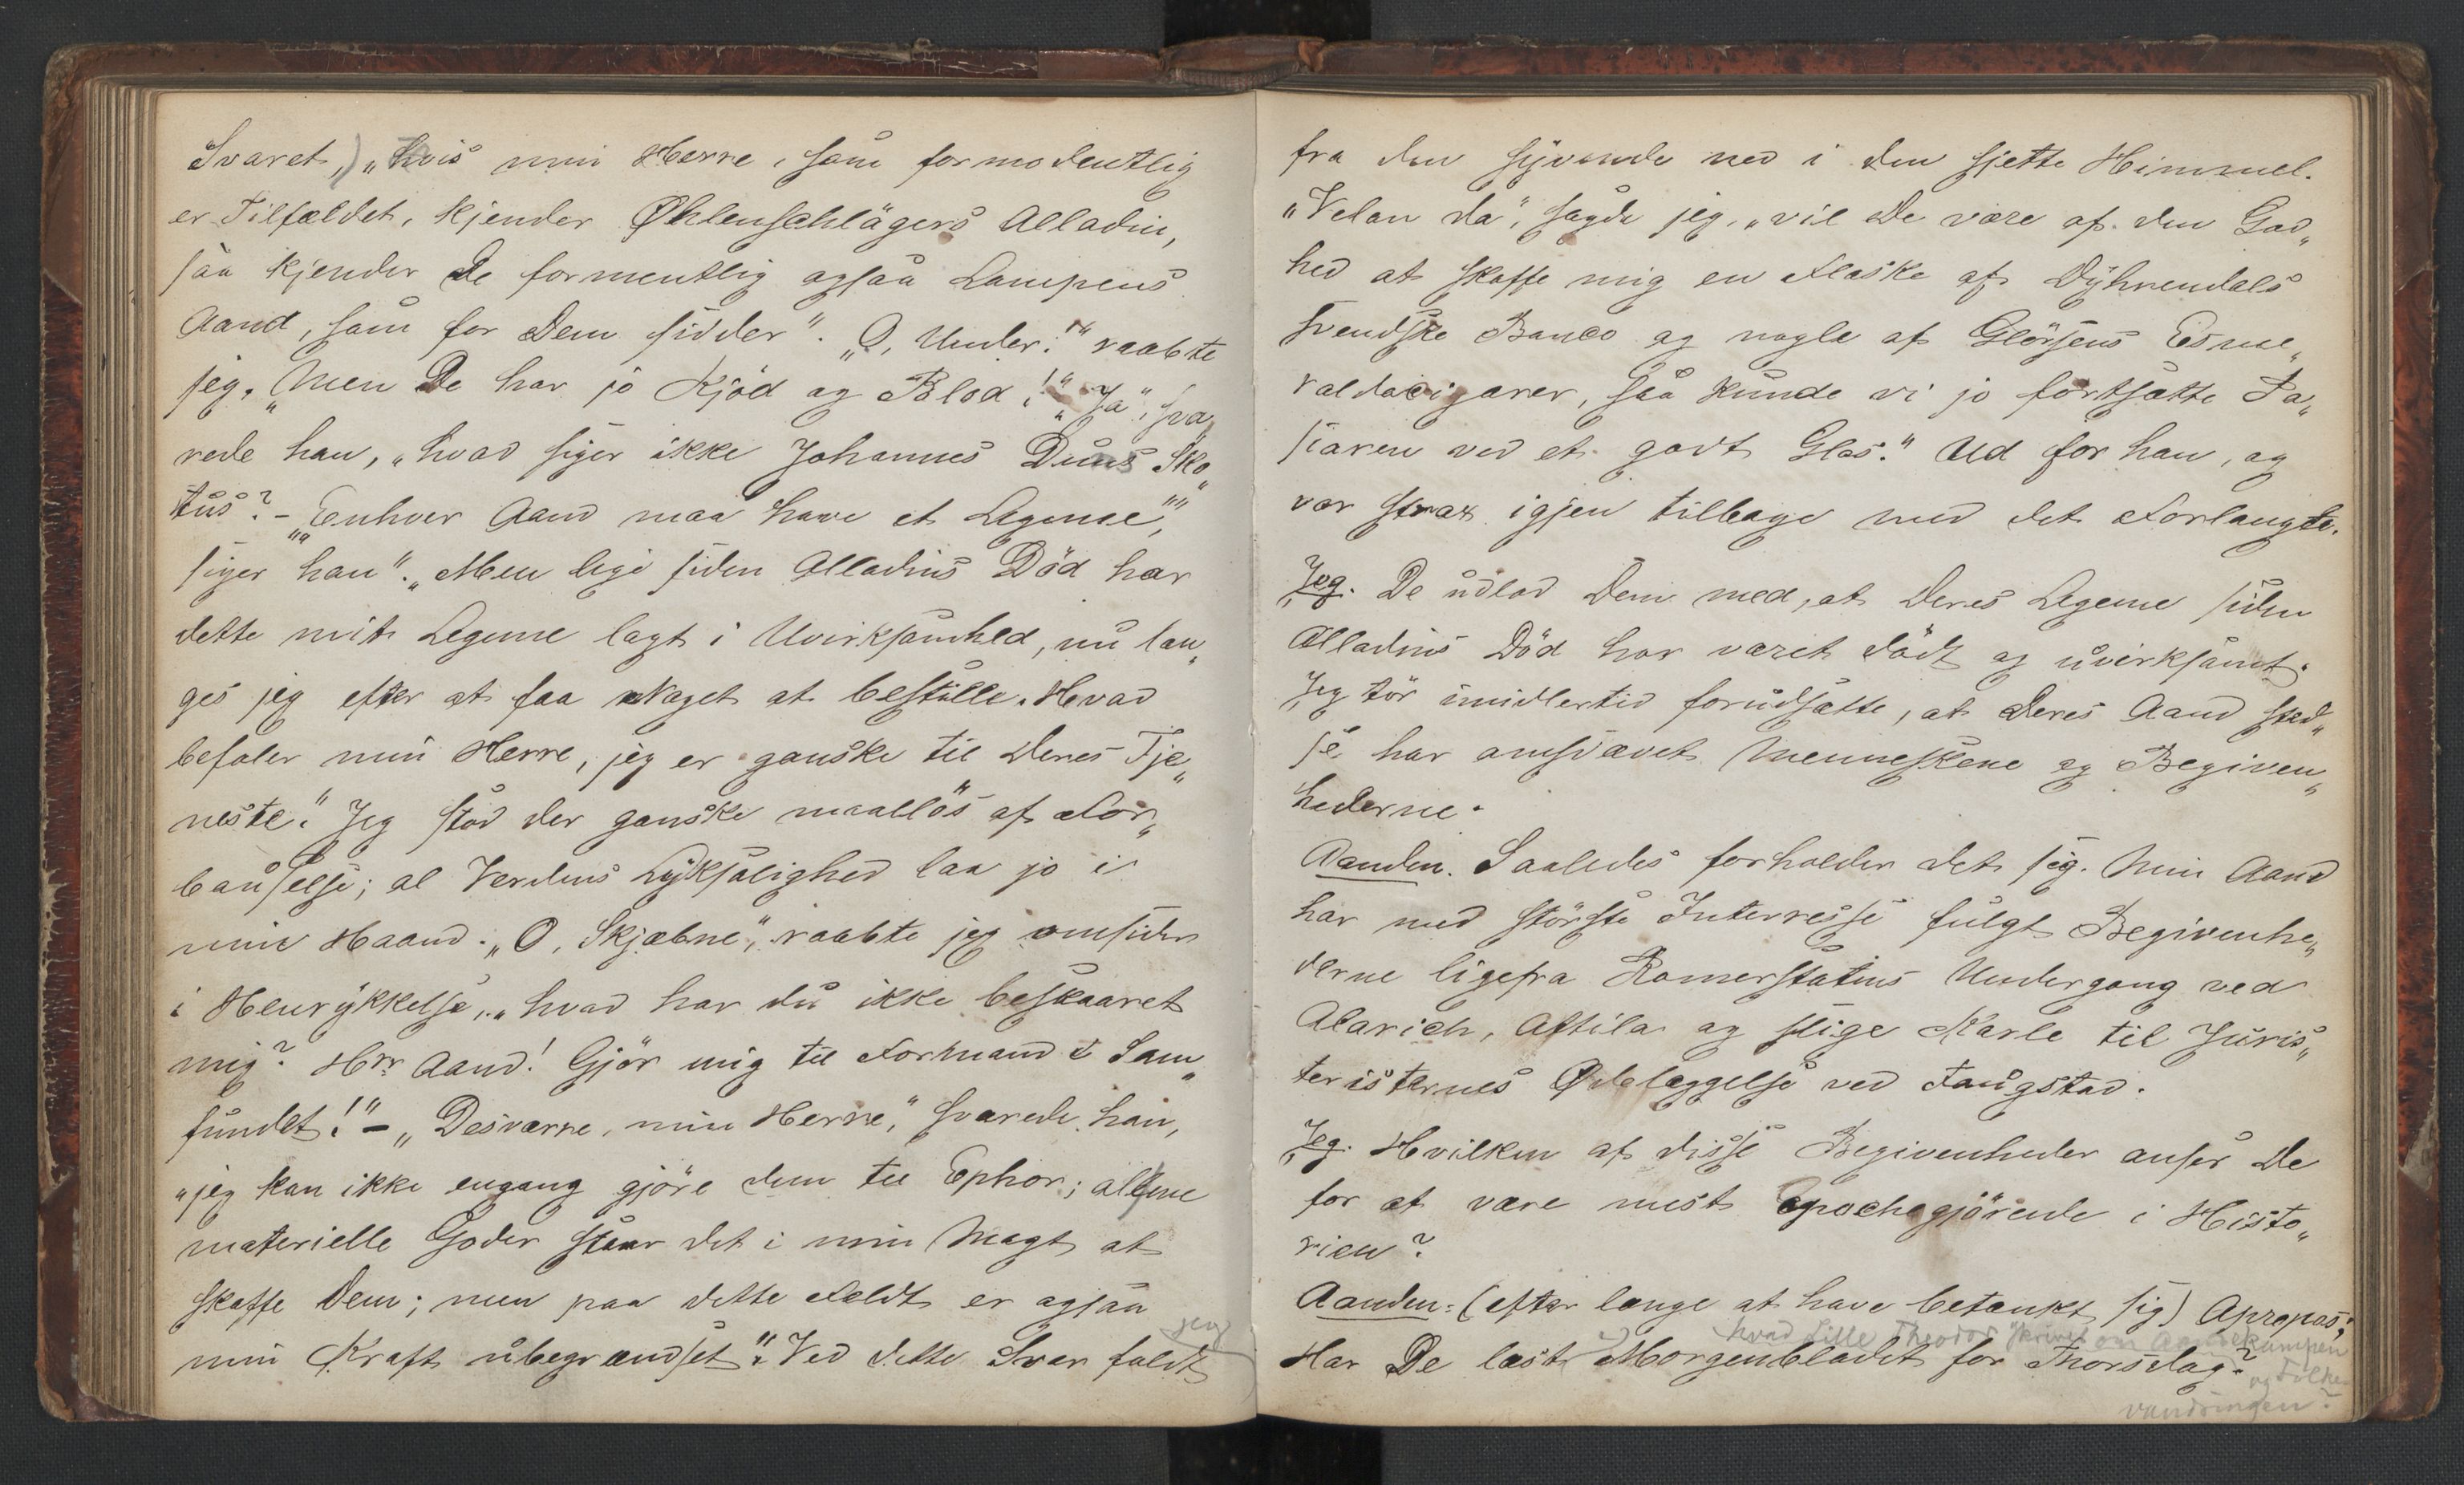 Svaret,) „hvis min Herre, som formodentlig
er Tilfældet, kjender Øhlenschlägers Alladin,
saa kjender De formentlig ogsaa Lampens
Aand, som for Dem sidder“. „O, Under!“ raabte
jeg. „Men De har jo Kjöd og Blod!“ „Ja“, sva„
rede han, „hvad siger ikke Johannes Duns Sko„
tus? – „„Enhver Aand maa have et Legeme““,
siger han“. „Men lige siden Alladins Död har
dette mit Legeme lagt i Uvirksomhed, nu læn„
ges jeg efter at faa Noget at bestille. Hvad
befaler min Herre, jeg er ganske til Deres Tje„
neste.“ Jeg stod der ganske maallös af For„
bauselse; al Verdens Lyksalighed laa jo i
min Haand. „O, Skjæbne“, raabte jeg omsider
i Henrykkelse, „hvad har du ikke beskaaret
mig? Hrr Aand! Gjör mig til Formand i Sam„
fundet!“ – „Desværre, min Herre,“ svarede han,
„jeg kan ikke engang gjöre dem til Ephor; allene
materielle Goder staar det i min Magt at
skaffe Dem; men paa dette Feldt er ogsaa
min Kraft ubegrændset“. Ved dette Svar faldt jeg
fra den syvende ned i den sjette Himmel.
„Velan da“, sagde jeg, „vil De være af den God„
hed at skaffe mig en Flaske af Dyhrendals
svendske Banco og nogle af Glörsens Esme„
raldacigarer, saa kunde vi jo fortsætte Pa„
siaren ved et godt Glas.“ Ud for han, og
var strax igjen tilbage med det Forlangte.
Jeg. De udlod Dem med, at Deres Legeme siden
Alladins Död har været dödt og uvirksomt.
Jeg tör imidlertid forudsætte, at Deres Aand sted„
se har omsvævet Menneskene og Begiven„
hederne.
Aanden. Saaledes forholder det sig. Min Aand
har med störste Interresse fulgt Begivenhe„
derne ligefra Romerstatens Undergang ved
Alarich, Attila og slige Karle til Juris„
teristernes Ødelæggelse ved Faugstad.
Jeg. Hvilken af disse Begivenheder anser De
for at være mest epochegjörende i Histo„
rien?
Aanden: (efter længe at have betænkt sig) Apropos;
hvad Lille Theodor skriver om kampen
Har De læst i Morgenbladet for Thorsdag?
og Folke
vandringen?